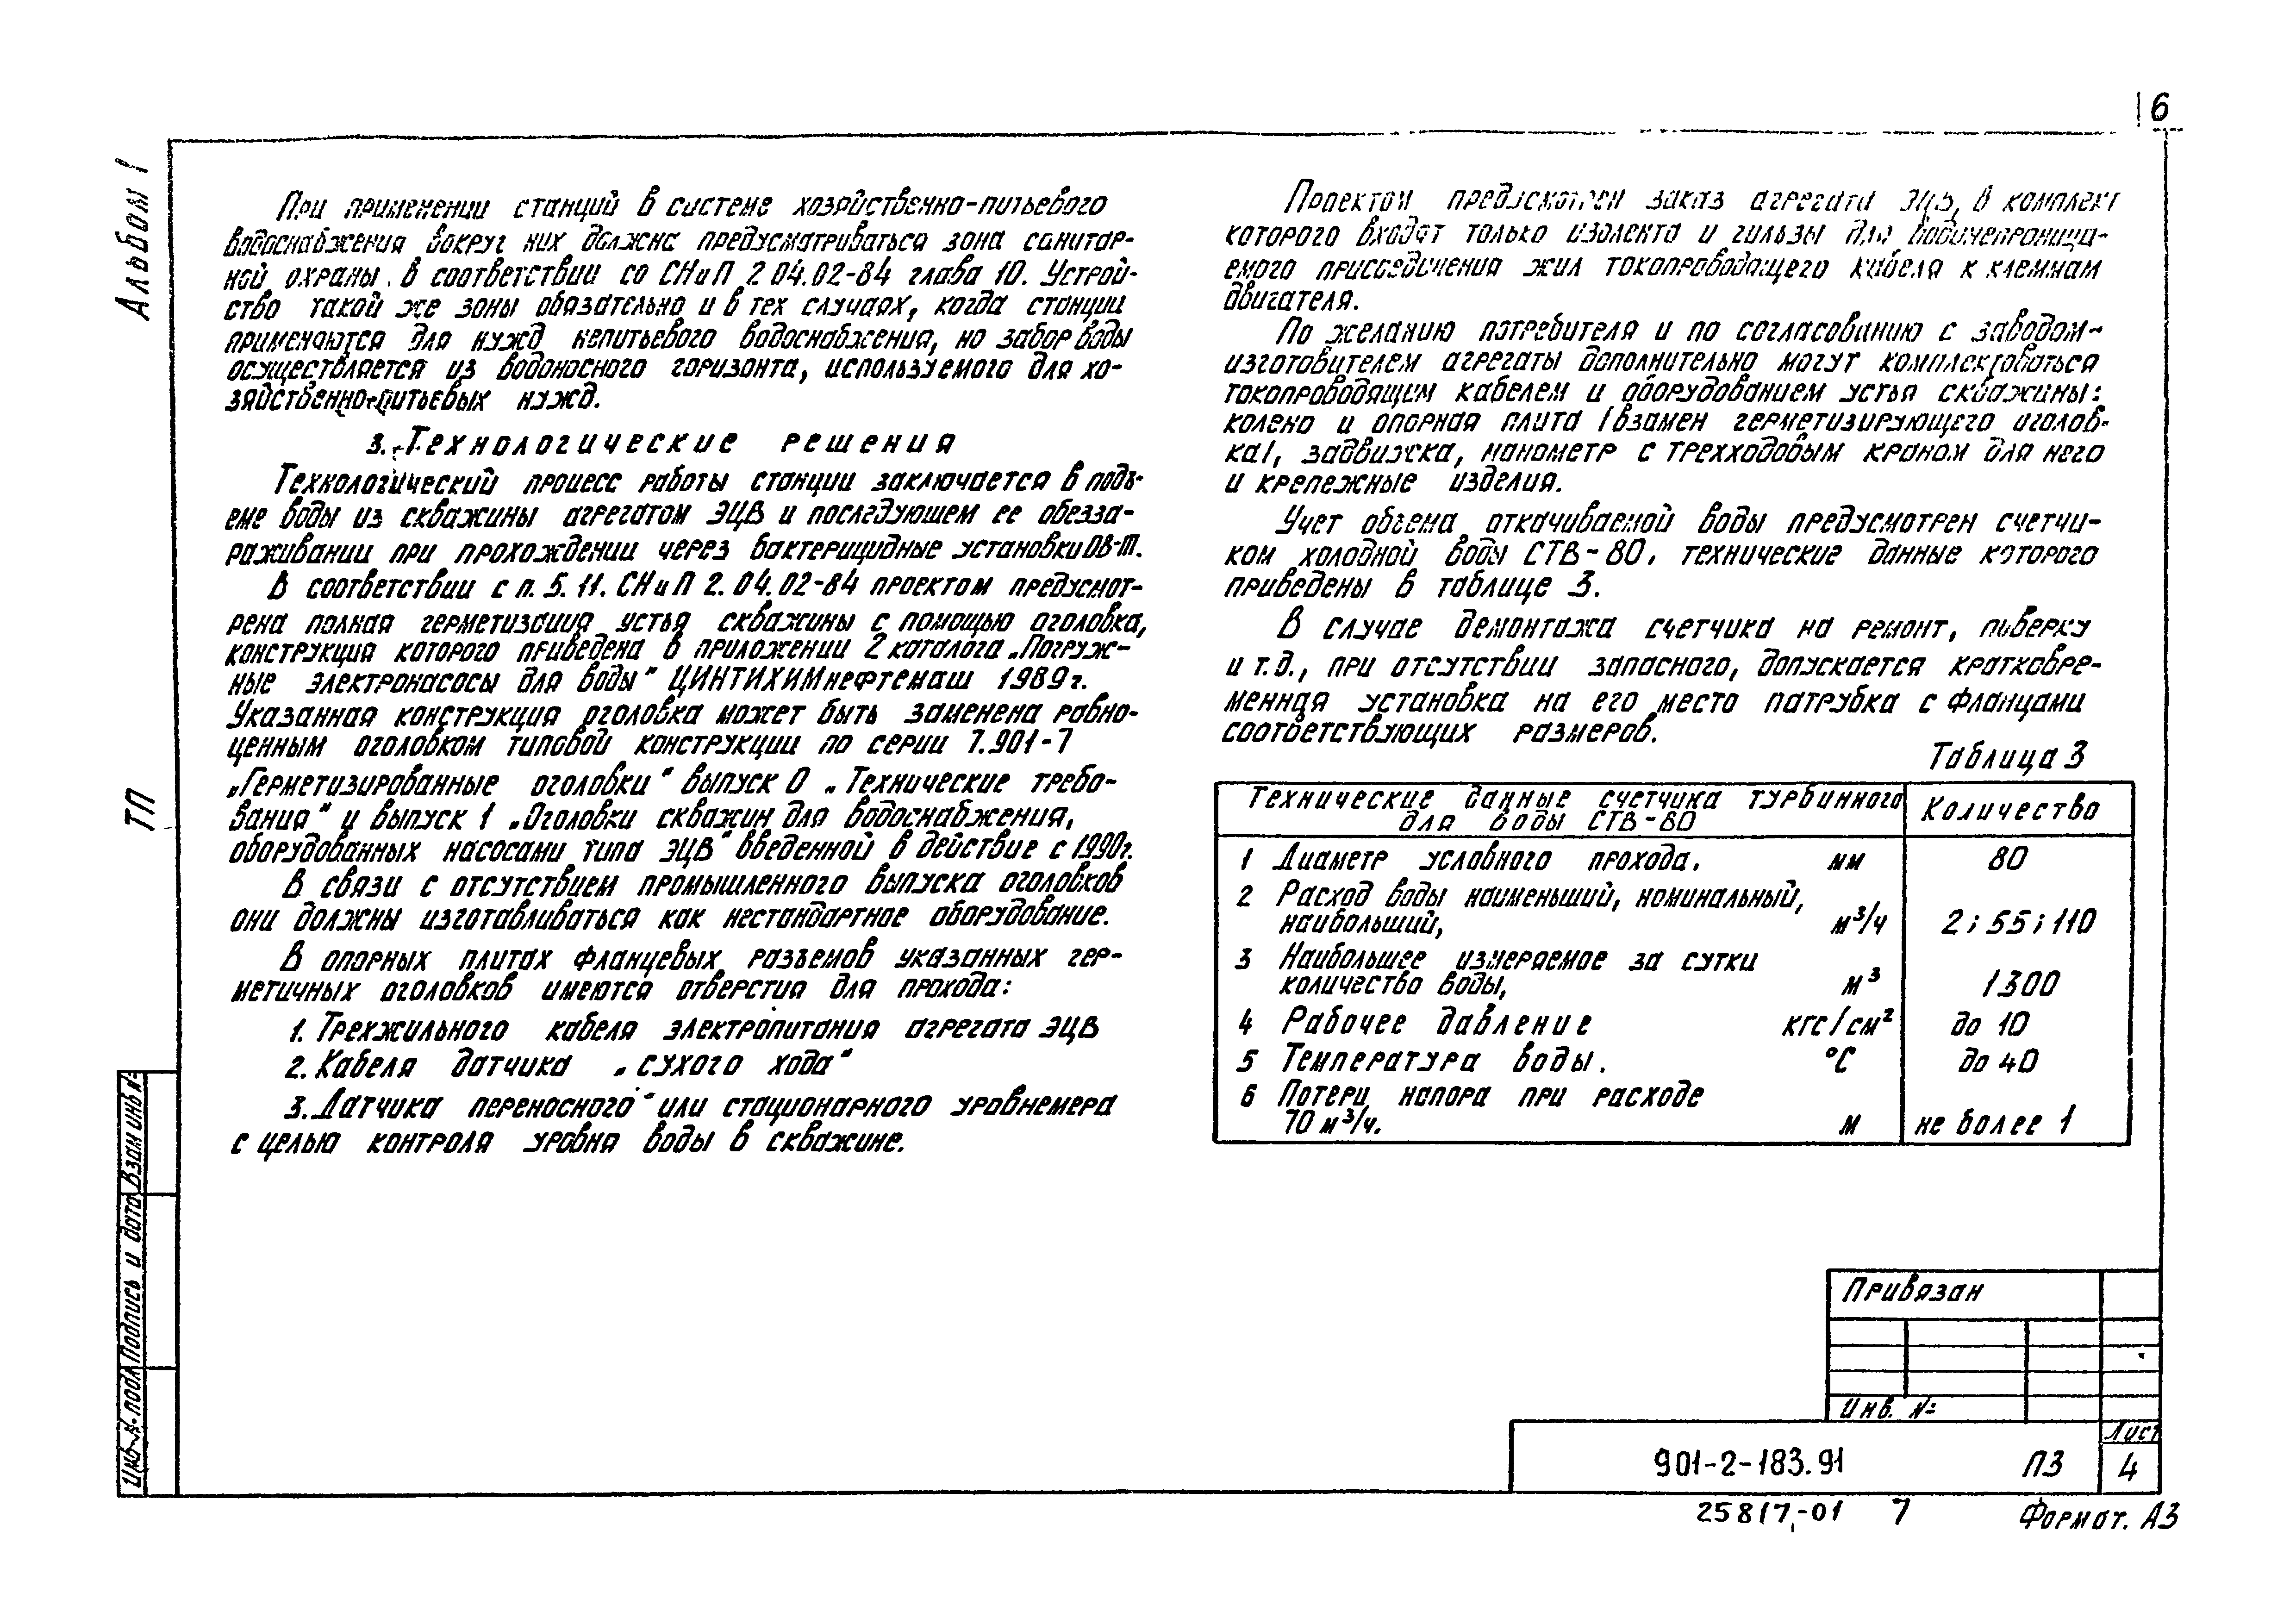 6
Альбом 1
ТП
При применении станций в системе хозяйственно-питьевого
водоснабжения вокруг них должна предусматриваться зона санитар-
ной охраны в соответствии со СНиП 2 04.02-84 глава 10. Устрой-
ство такой же зоны обязательно и в тех случаях, когда станции
применяются для нужд непитьевого водоснабжения, но забор воды
осуществляется из водоносного горизонта, используемого для хо-
зяйственно-питьевых нужд.
3. Технологические решения
Технологический процесс работы станции заключается в подъ-
еме воды из скважины агрегатом ЭЦВ и последующем ее обезза-
раживании при прохождении через бактерицидные установки ОВ-1П.
В соответствии с п. 5. 11. СНиП 2. 04. 02-84 проектом предусмот-
рена полная герметизация устья скважины с помощью оголовка,
конструкция которого приведена в приложении 2 каталога „Погруж-
ные электронасосы для воды" ЦИНТИХИМнефтемаш 1989г.
Указанная конструкция оголовка может быть заменена равно-
ценным оголовком типовой конструкции по серии 7.901-7
„Герметизированные оголовки" выпуск 0 „Технические требо-
вания" и выпуск 1 „Оголовки скважин для водоснабжения,
оборудованных насосами типа ЭЦВ" введенной в действие с 1990г.
В связи с отсутствием промышленного выпуска оголовков
они должны изготавливаться как нестандартное оборудование.
В опорных плитах фланцевых разъемов указанных гер-
метичных оголовков имеются отверстия для прохода:
1. Трехжильного кабеля электропитания агрегата ЭЦВ
2. Кабеля датчика „сухого хода"
3. Датчика переносного или стационарного уровнемера
с целью контроля уровня воды в скважине.
Проектом предусмотрен заказ агрегата ЭЦВ, в комплект
которого входят только изолента и гильзы для водонепроница-
емого присоединения жил токопроводящего кабеля к клеммам
двигателя.
По желанию потребителя и по согласованию с заводом-
изготовителем агрегаты дополнительно могут комплектоваться
токопроводящим кабелем и оборудованием устья скважины:
колено и опорная плита (взамен герметизирующего оголов-
ка), задвижка, манометр с трехходовым краном для него
и крепежные изделия.
Учет объема откачиваемой воды предусмотрен счетчи-
ком холодной воды СТВ-80, технические данные которого
приведены в таблице 3.
В случае демонтажа счетчика на ремонт, поверку
и т.д., при отсутствии запасного, допускается кратковре-
менная установка на его место патрубка с фланцами
соответствующих размеров.
Таблица 3
Технические данные счетчика турбинного
для воды СТВ-80
Количество
1 Диаметр условного прохода. мм 80
2 Расход воды наименьший, номинальный,
наибольший, м³/ч 2; 55; 110
3 Наибольшее измеряемое за сутки
количество воды, м³ 1300
4 Рабочее давление кгс/см² до 10
5 Температура воды. °С до 40
6 Потери напора при расходе
70 м³/ч. м не более 1
Взам инв №
Подпись и дата
Инв № подл
Привязан
Инв. №
901-2-183.91 ПЗ
Лист
4
25817-01 7 Формат. А3